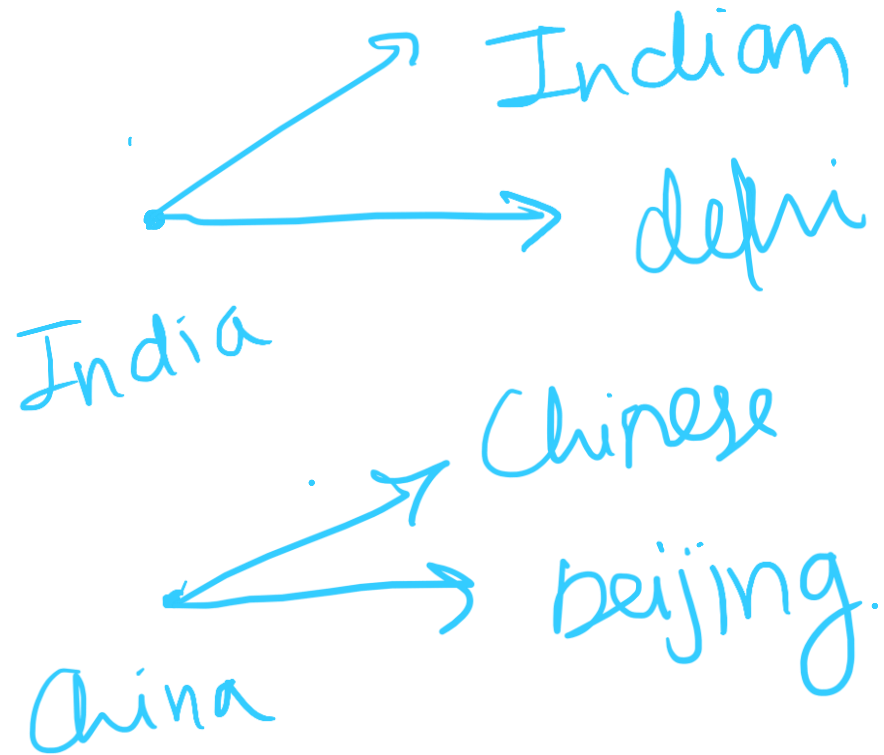 Indian
delhi
India
Chinese
beijing.
China